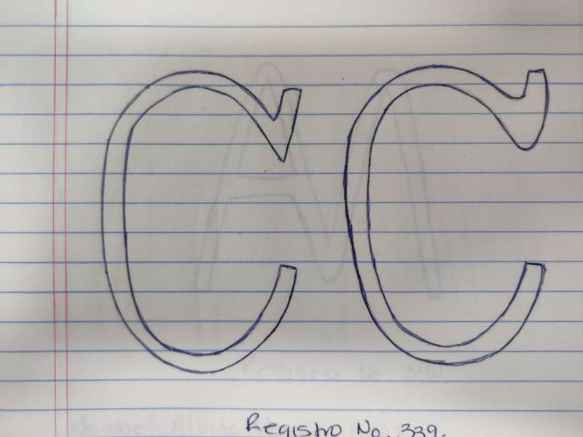 CC
Registro No. 339.